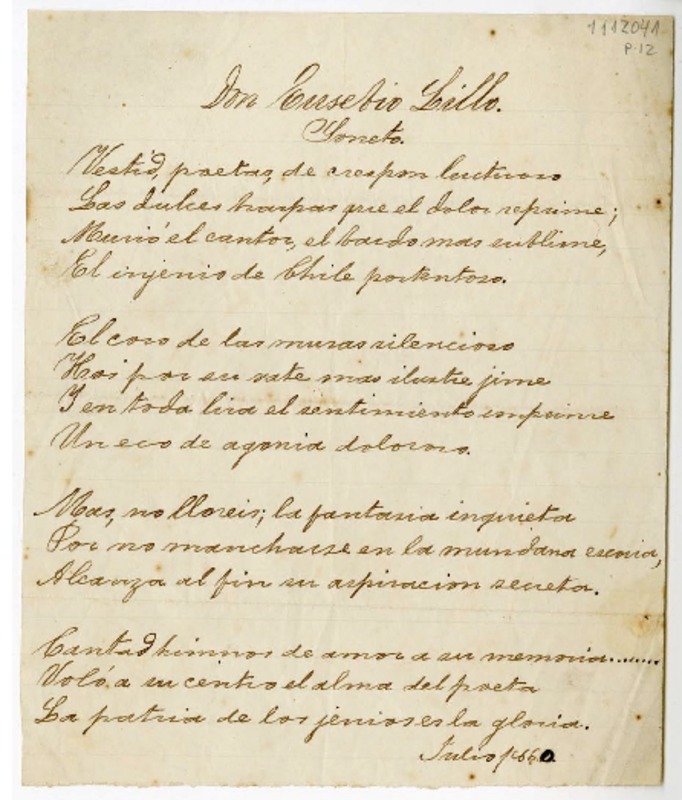 1112041
P-12
Don Eusebio Lillo.
Soneto.
Vestid, poetas, de crespon luctuoso
Las dulces harpas que el dolor reprime;
Murió el cantor, el bardo mas sublime,
El injenio de Chile portentoso.
El coro de las musas silencioso
Hoi por su vate mas ilustre jime
I en toda lira el sentimiento imprime
Un eco de agonia doloroso.
Mas, no lloreis; la fantasia inquieta
Por no mancharse en la mundana escoria,
Alcanza al fin su aspiracion secreta.
Cantad himnos de amor a su memoria........
Voló a su centro el alma del poeta
La patria de los jenios es la gloria.
Julio